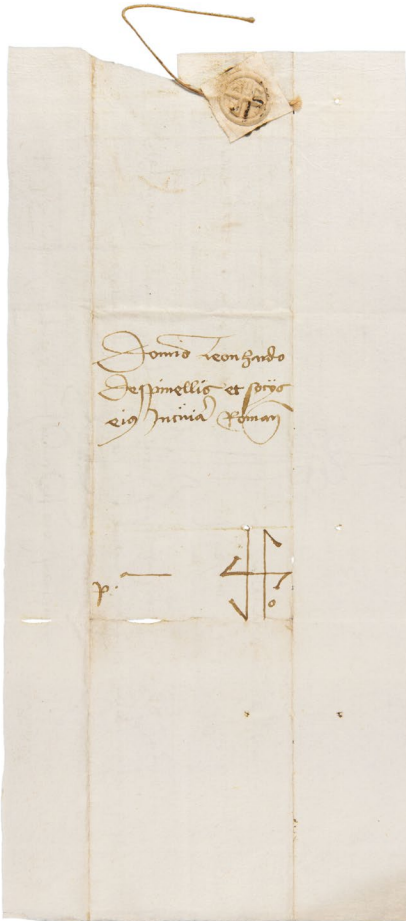 Domino Leonhardo
Despinellis et socijs
eiq Incuria Roman
p.